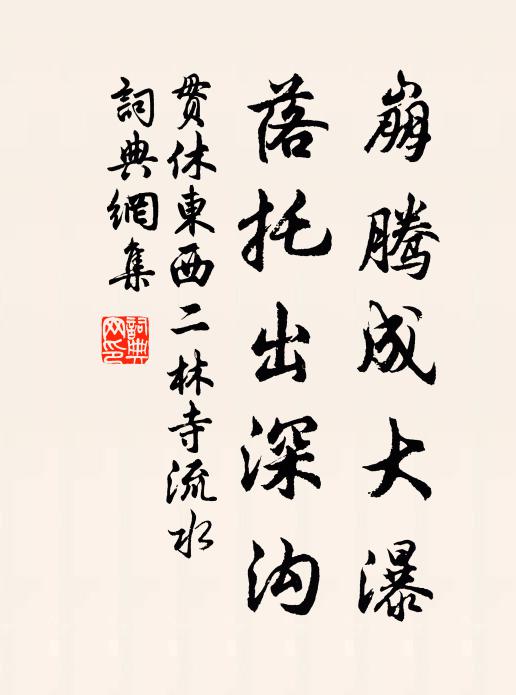 崩騰成大瀑
落托出深沟
貫休東西二林寺流水
詞典網集
詞典
网印